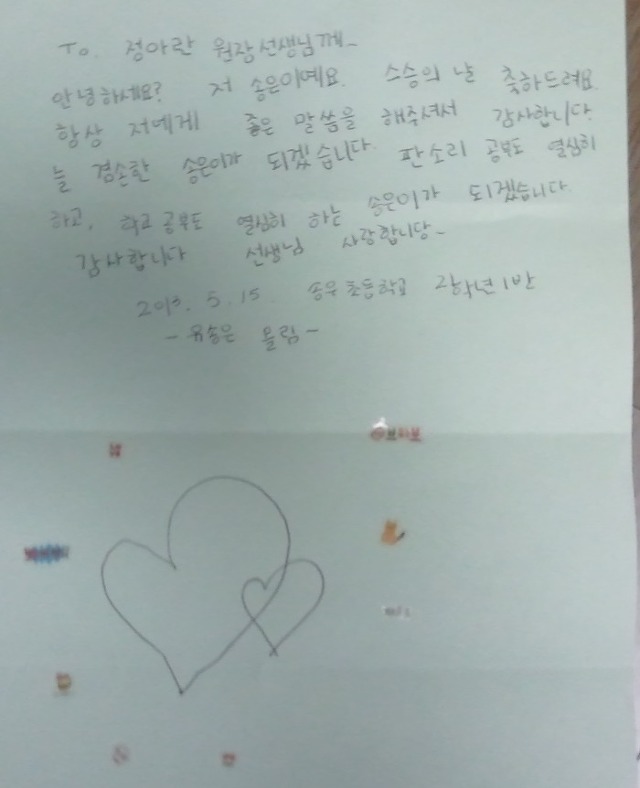 To. 정아란 원장선생님께~
안녕하세요? 저 송은이예요. 스승의 날 축하드려요.
항상 저에게 좋은 말씀을 해주셔서 감사합니다.
늘 겸손한 송은이가 되겠습니다. 판소리 공부도 열심히
하고, 학교공부도 열심히 하는 송은이가 되겠습니다.
감사합니다 선생님 사랑합니당~
2013. 5. 15 송우초등학교 2학년 1반
- 유송은 올림 -